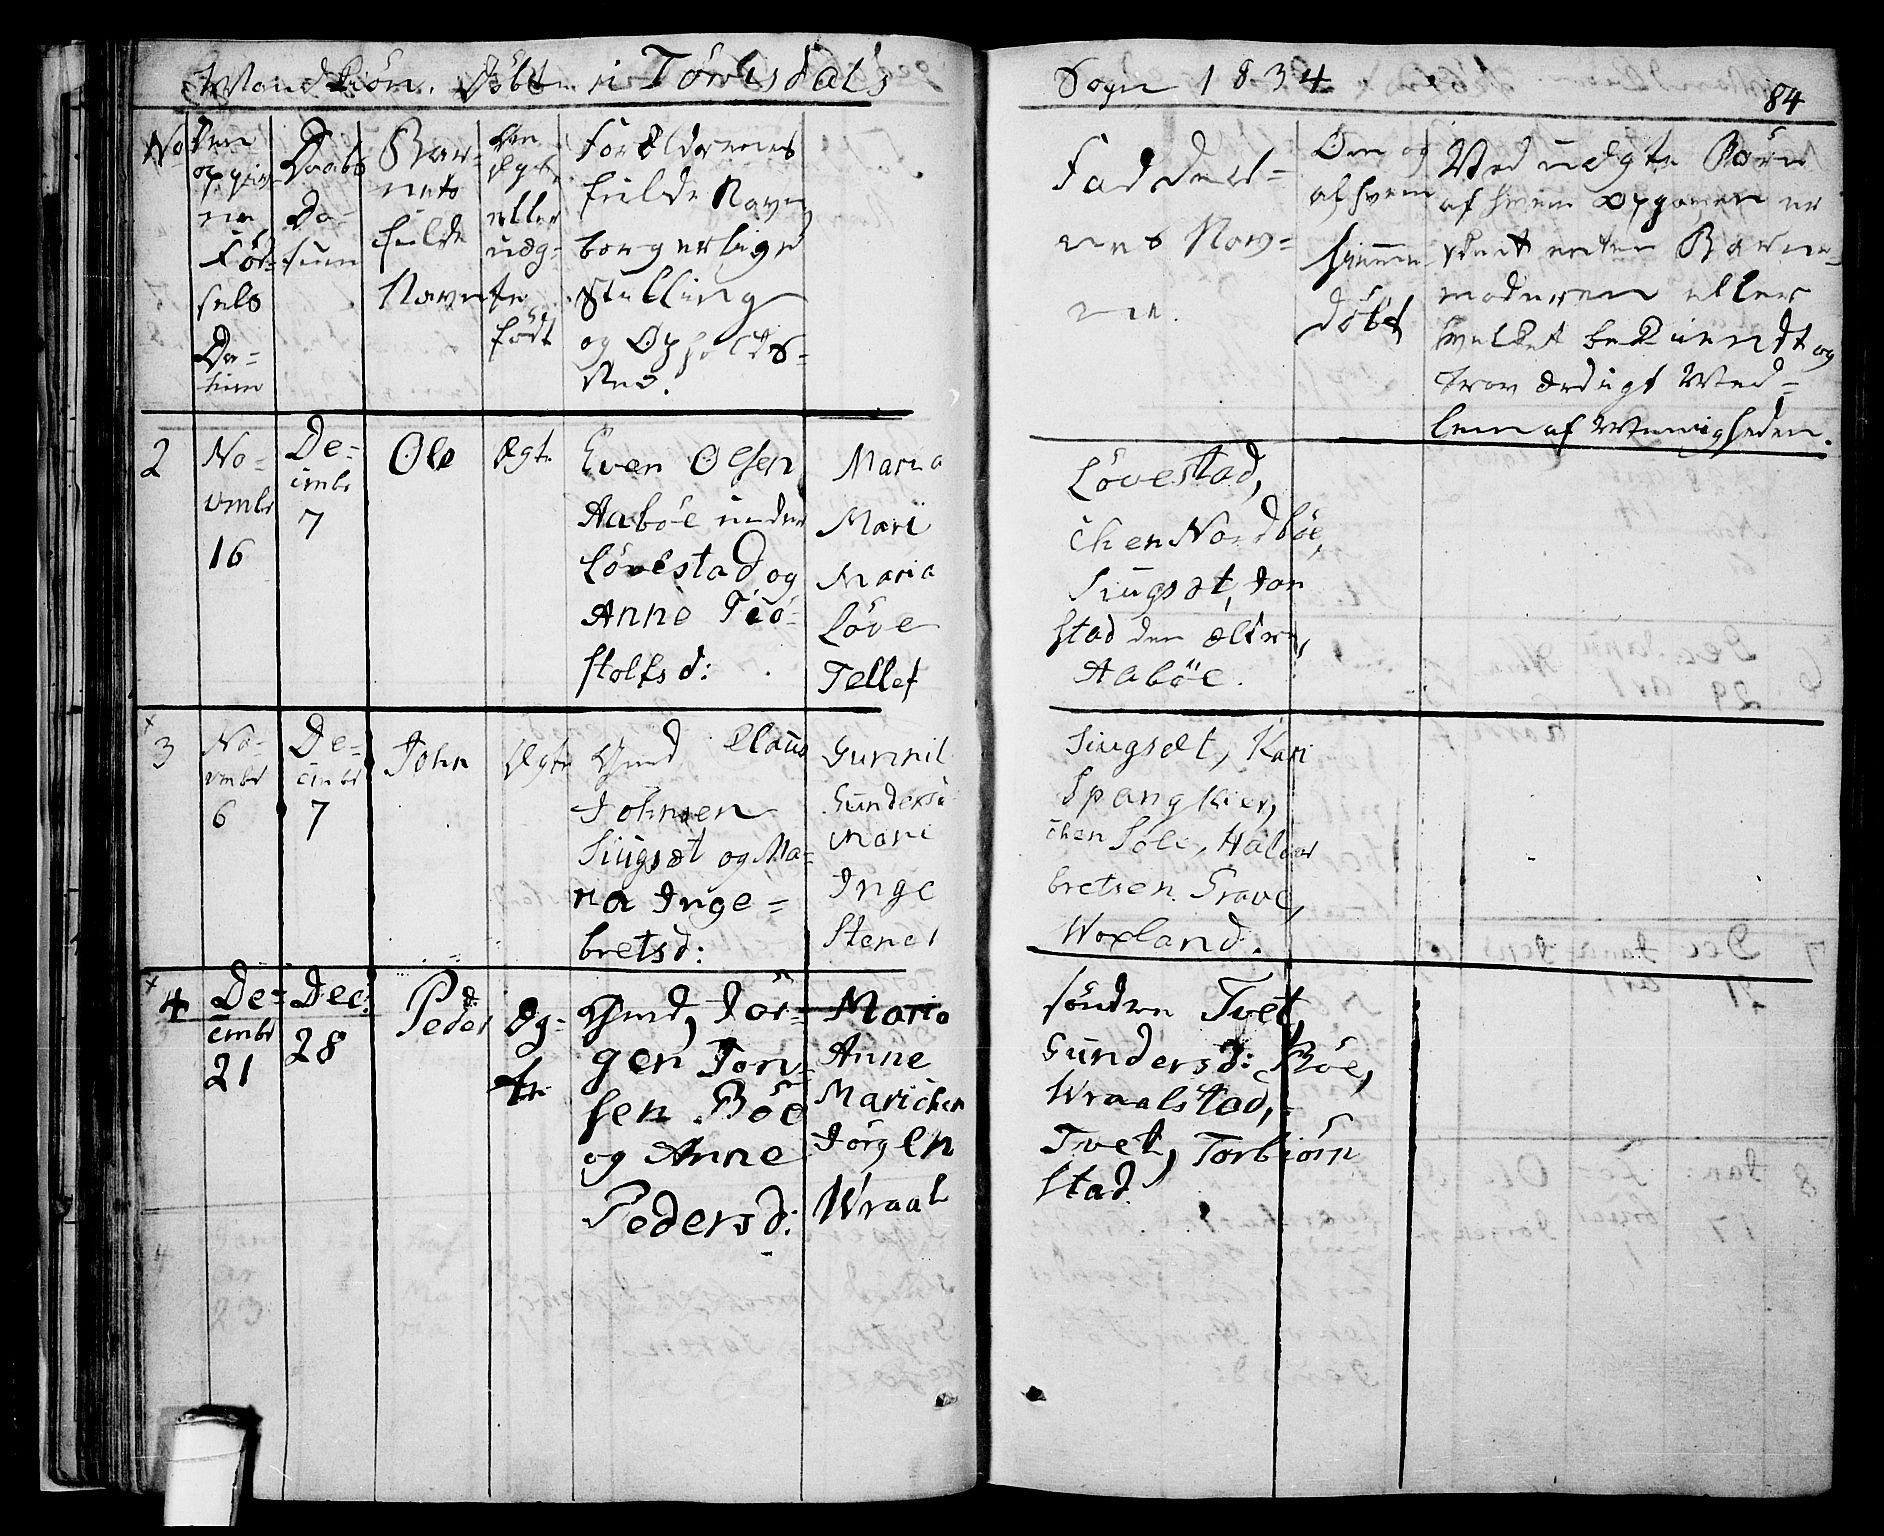 Mandkiön. Döbte i Törlisdals
Sogn 1834
84
No
Den opgivne Födsels Datum
Daabs Datum
Barnets fulde Navn
Om Ægte eller uægte födt
Forældrenes
fulde Navn
borgerlige
Stilling
og Opholds-
sted.
Faddernes Navne.
Om og
af hvem
hiemme
döbt
Ved uægte Börn
af hvem Opgaven er
skeet enten Barne-
moderen eller
hvilket bekiendt og
troværdigt Med-
lem af Menigheden.
2
No-
vmbr
16
De-
cmbr
7
Ole
Ægt.
Even Olsen
Aaböe under
Lövestad og
Anne Tio-
stolfsd:
Maria
Mari
Maria
Löve
Tellef
Lövestad,
chen Nordböe,
Siugsæt, Jon
stad den ældre,
Aaböe.
3
No-
vmbr
6
De-
cmbr
7
John
Ægte
Gmd Claus
Johnsen
Siugsæt og Ma-
ria Inge=
bretsd:
Gunnil
Gunders
Mari
Inge
Stener
Siugsæt, Kari
Spangkier,
chen Sole, Halvor
bretsen Grave,
Woxland.
4
De-
cmbr
21
Dec:
28
Peder
Æg-
te
Gmd, Jör-
gen Jon-
sen Böe
og Anne
Pedersd:
Maria
Anne
Marichen
Jörgen
Wraal
söndre Tvet,
Gundersd: Böe,
Wraalstad,
Tvet, Torbiörn
stad.